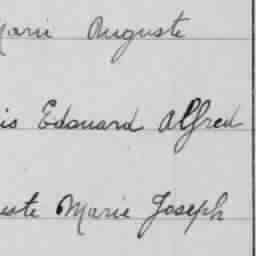 Marie Auguste
is Edouard Alfred
uste Marie Joseph